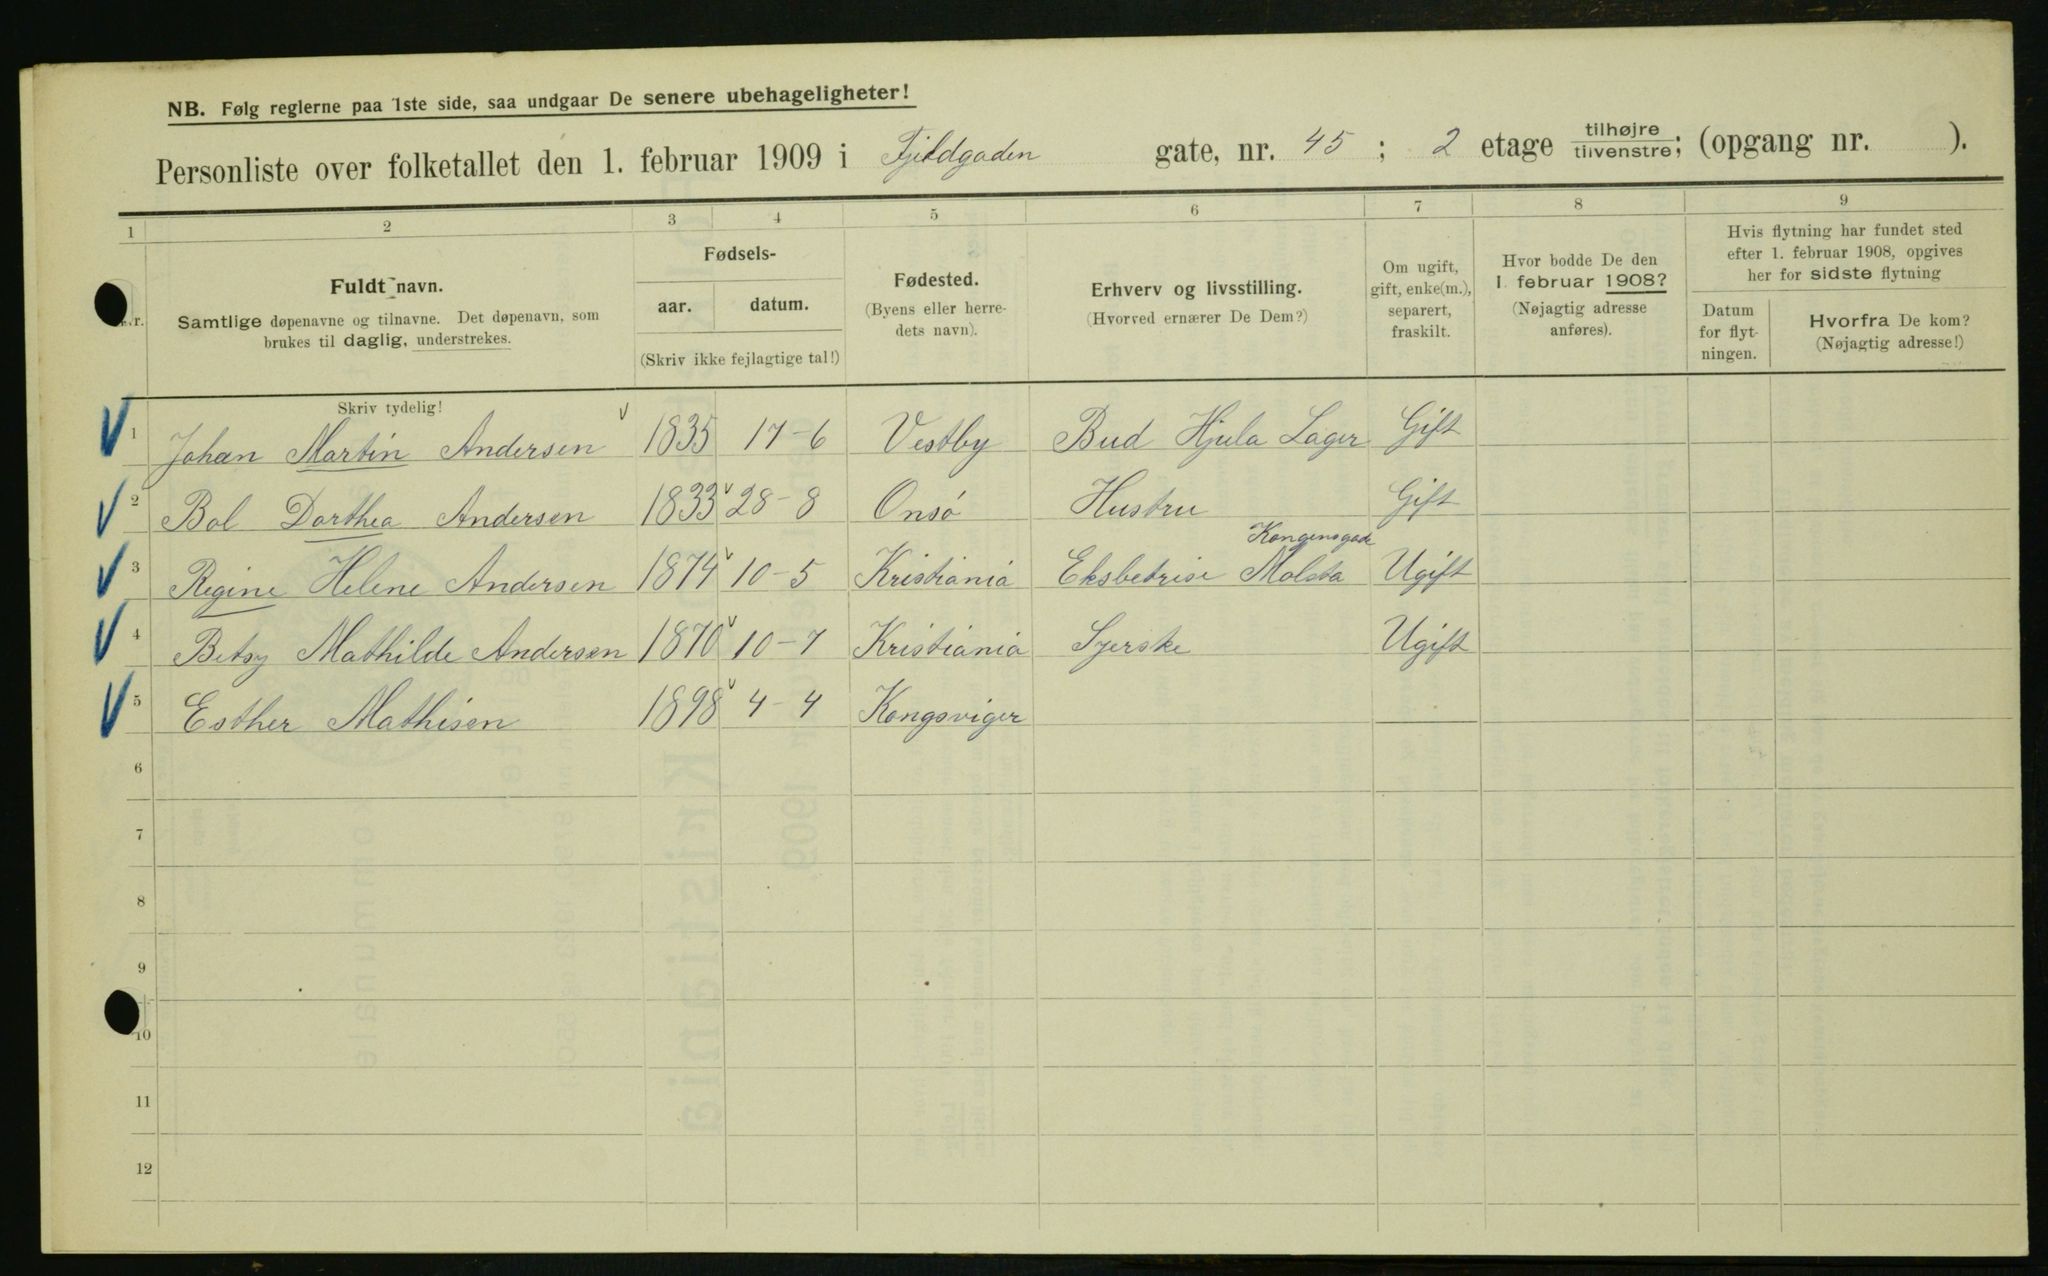 NB. Følg reglerne paa 1ste side, saa undgaar De senere ubehageligheter!
Personliste over folketallet den 1. februar 1909 i Fjeldgaden gate, nr. 45 ; 2 etage tilhøjre tilvenstre; (opgang nr. ).
1 2 3 4 5 6 7 8 9
Fuldt navn.
Samtlige døpenavne og tilnavne. Det døpenavn, som
brukes til daglig, understrekes.
Fødsels-
aar. datum.
(Skriv ikke fejlagtige tal!)
Fødested.
(Byens eller herre-
dets navn).
Erhverv og livsstilling.
(Hvorved ernærer De Dem?)
Om ugift,
gift, enke(m.),
separert,
fraskilt.
Hvor bodde De den
1. februar 1908?
(Nøjagtig adresse
anføres).
Hvis flytning har fundet sted
efter 1. februar 1908, opgives
her for sidste flytning
Datum
for flyt-
ningen.
Hvorfra De kom?
(Nøjagtig adresse!)
Skriv tydelig!
1 Johan Martin Andersen 1835 17-6 Vestby Bud Hjula Lager Gift
2 Bol Dorthea Andersen 1833 28-8 Onsø Hustru Gift
Kongensgade
3 Regine Helene Andersen 1874 10-5 Kristiania Eksbetrise Molsta Ugift
4 Betsy Mathilde Andersen 1870 10-7 Kristiania Syerske Ugift
5 Esther Mathisen 1898 4-4 Kongsviger
6
7
8
9
10
11
12